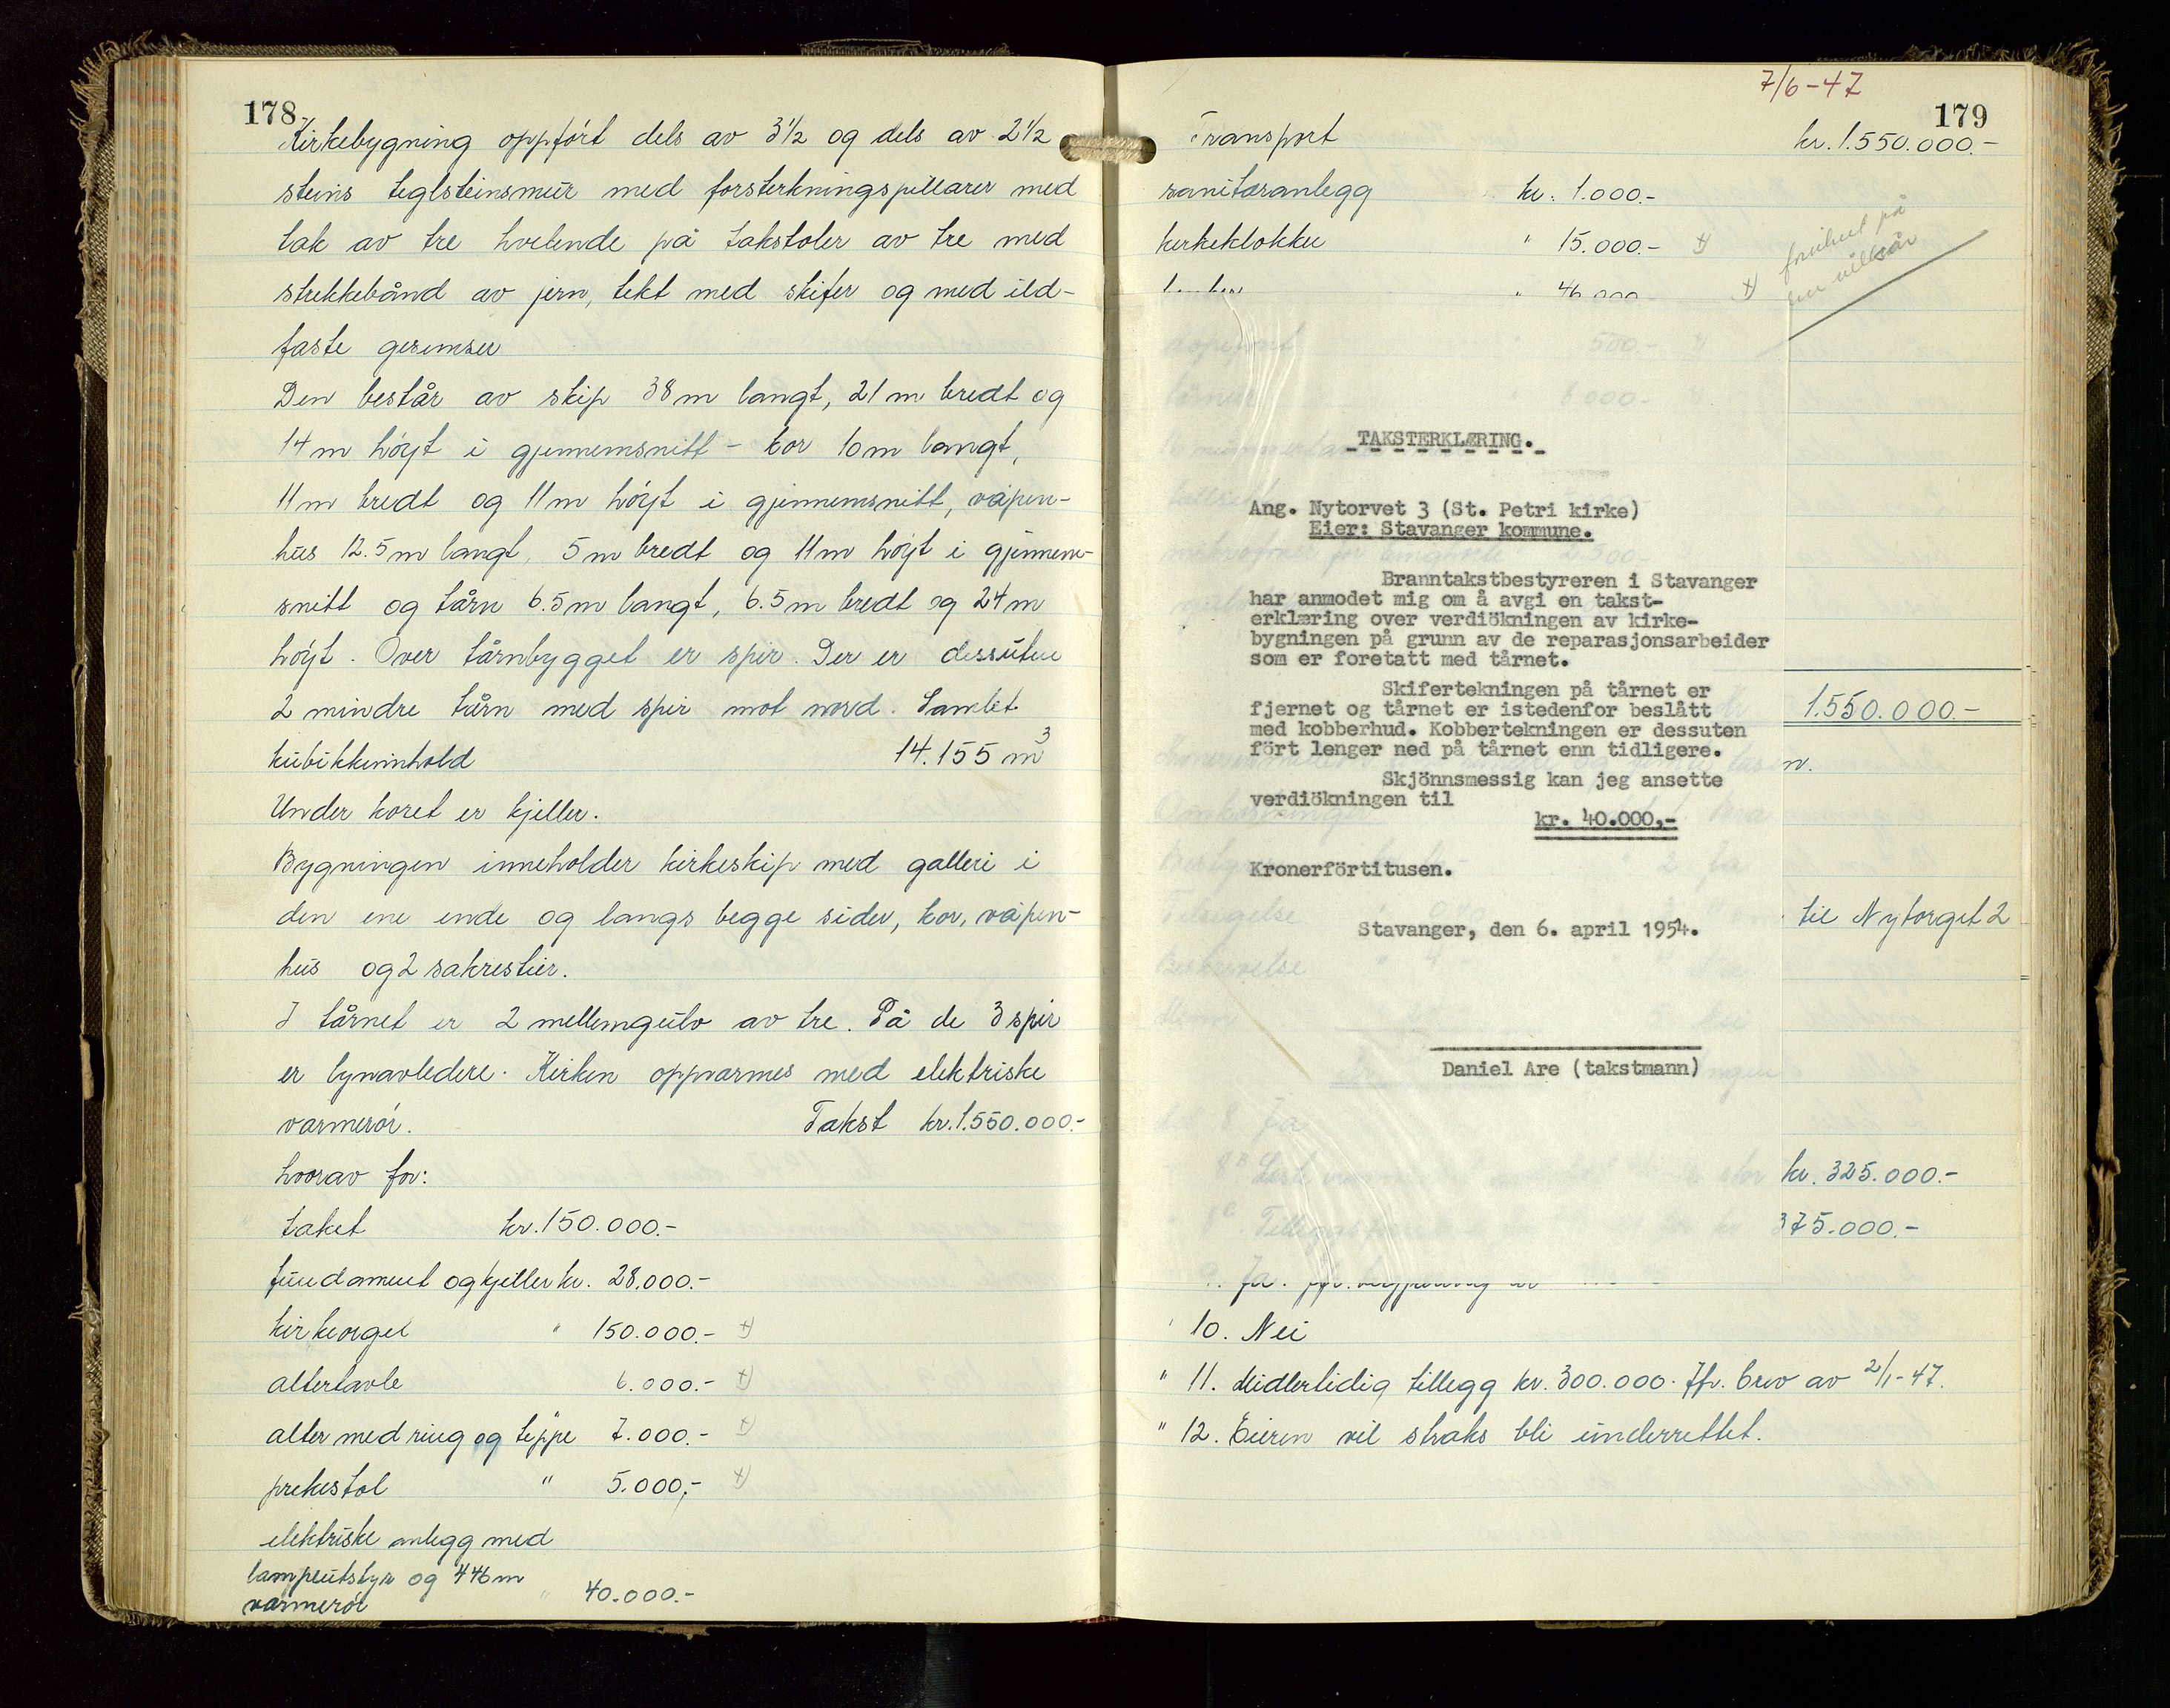 178
Kirkebygning oppført dels av 3½ og dels av 2½
steins teglsteinsmur med forsterkningspillarer med
tak av tre hvelende på takstoler av tre med
strekkebånd av jern, tekt med skifer og med ild-
faste gesimser
Den består av skip 38 m langt, 21 m bredt og
14 m høyt i gjennemsnitt - kor 10 m langt,
11 m bredt og 11 m høyt i gjennemsnitt, våpen-
hus 12.5 m langt, 5 m bredt og 11 m høyt i gjennem-
snitt og tårn 6.5 m langt, 6.5 m bredt og 24 m
høyt. Over tårnbygget er spir. Der er dessuten
2 mindre tårn med spir mot nord. Samlet
kubikkinnhold 14.155 m³
Under koret er kjeller.
Bygningen inneholder kirkeskip med galleri i
den ene ende og langs begge sider, kor, våpen-
hus og 2 sakrestier.
I tårnet er 2 mellemgulv av tre. På de 3 spir
er lynavledere. Kirken oppvarmes med elektriske
varmerør. Takst kr. 1.550.000.-
hvorav for:
taket kr. 150.000.-
fundament og kjeller kr. 28.000.-
kirkeorgel " 150.000.- +)
altertavle 6.000.- +)
alter med ring og teppe 7.000.- +)
prekestol " 5.000,- +)
elektriske anlegg med
lampeutstyr og 446 m
varmerør " 40.000.-
7/6-47
179
Transport kr. 1.550.000.-
sanitæranlegg kr. 1.000.-
kirkeklokke " 15.000.- +)
" 46.000.- +)
på
vilkår
døpefont 500.- +)
8000.-
TAKSTERKLÆRING.
Ang. Nytorvet 3 (St. Petri kirke)
Eier: Stavanger kommune.
Branntakstbestyreren i Stavanger
har anmodet mig om å avgi en takst-
erklæring over verdiökningen av kirke-
bygningen på grunn av de reparasjonsarbeider
som er foretatt med tårnet.
Skifertekningen på tårnet er
fjernet og tårnet er istedenfor beslått
med kobberhud. Kobbertekningen er dessuten
fört lenger ned på tårnet enn tidligere.
1.550.000.-
Skjönnsmessig kan jeg ansette
verdiökningen til
n.
kr. 40.000,-
Kronerförtitusen.
til Nytorget 2
Stavanger, den 6. april 1954.
Daniel Are (takstmann)
kr. 325.000.-
375.000.-
10. Nei
" 11. Midlertidig tillegg kr. 300.000. Jfr. brev av 2/1-47.
" 12. Eieren vil straks bli underrettet.